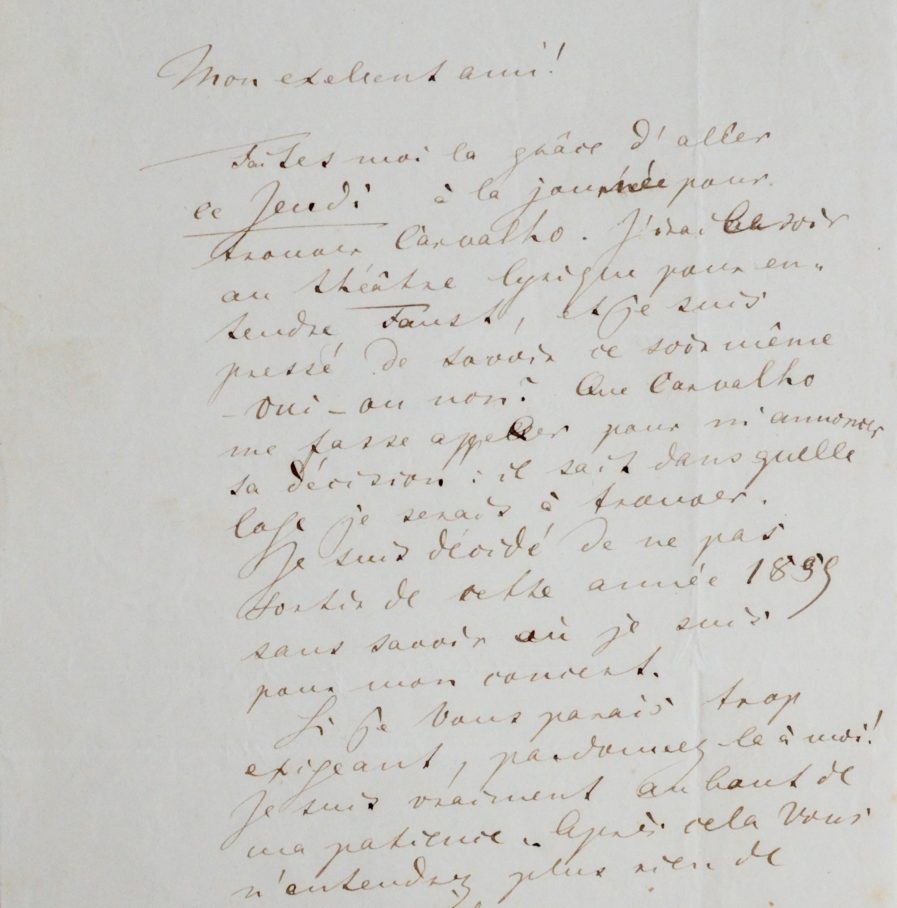 Mon exelient ami!
Faites moi la grâce d'aller
ce Jendi à la journée pour
trouver Carvalho. J'irai ce soir
au théâtre lyrique pour en-
tendre Faust, et je suis
pressé de savoir ce soir même
- oui - ou non? Que Carvalho
me fasse appeler pour m'annoncer
sa décision: il sait dans quelle
loge je serais à trouver.
Je suis décidé de ne pas
sortir de cette année 1859
sans savoir où je suis
pour mon concert.
Si je Vous parais trop
exigeant, pardonnez-le à moi!
Je suis vraiment au bout de
ma patience. Après cela Vous
n'entendrez plus rien de